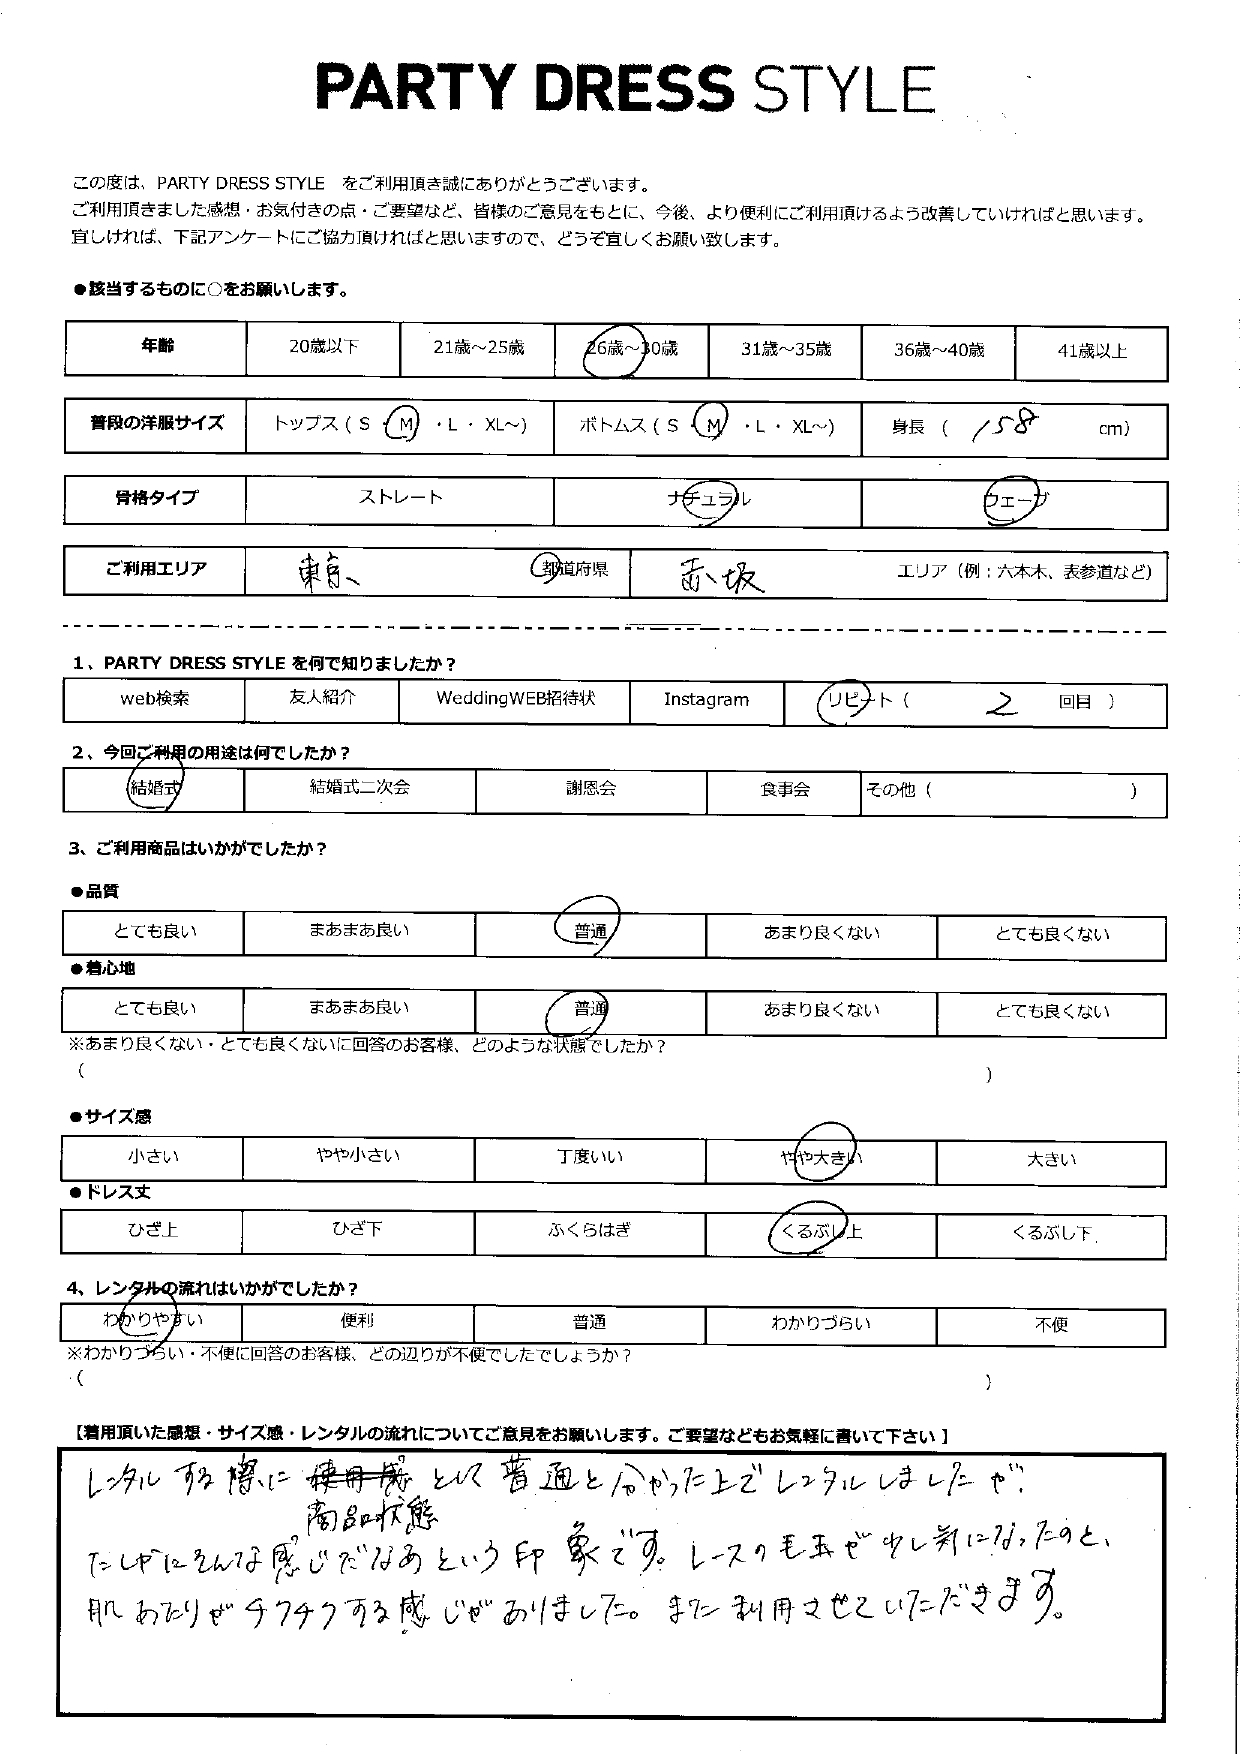 PARTY DRESS STYLE
この度は、PARTY DRESS STYLE　をご利用頂き誠にありがとうございます。
ご利用頂きました感想・お気付きの点・ご要望など、皆様のご意見をもとに、今後、より便利にご利用頂けるよう改善していければと思います。
宜しければ、下記アンケートにご協力頂ければと思いますので、どうぞ宜しくお願い致します。
●該当するものに○をお願いします。
年齢 20歳以下 21歳～25歳 26歳～30歳 31歳～35歳 36歳～40歳 41歳以上
普段の洋服サイズ トップス ( S ・ M ・ L ・ XL～) ボトムス ( S ・ M ・ L ・ XL～) 身長 ( 158 cm)
骨格タイプ ストレート ナチュラル ウェーブ
ご利用エリア 東京 都道府県 赤坂 エリア（例：六本木、表参道など）
1、PARTY DRESS STYLE を何で知りましたか？
web検索 友人紹介 WeddingWEB招待状 Instagram リピート（ 2 回目 ）
2、今回ご利用の用途は何でしたか？
結婚式 結婚式二次会 謝恩会 食事会 その他（ ）
3、ご利用商品はいかがでしたか？
●品質
とても良い まあまあ良い 普通 あまり良くない とても良くない
●着心地
とても良い まあまあ良い 普通 あまり良くない とても良くない
※あまり良くない・とても良くないに回答のお客様、どのような状態でしたか？
（ ）
●サイズ感
小さい やや小さい 丁度いい やや大きい 大きい
●ドレス丈
ひざ上 ひざ下 ふくらはぎ くるぶし上 くるぶし下
4、レンタルの流れはいかがでしたか？
わかりやすい 便利 普通 わかりづらい 不便
※わかりづらい・不便に回答のお客様、どの辺りが不便でしたでしょうか？
（ ）
【着用頂いた感想・サイズ感・レンタルの流れについてご意見をお願いします。ご要望などもお気軽に書いて下さい】
レンタルする際に使用感として普通と分かった上でレンタルしましたが、
商品状態
たしかにそんな感じだなあという印象です。レースの毛玉が少し気になったのと、
肌あたりがチクチクする感じがありました。また利用させていただきます。